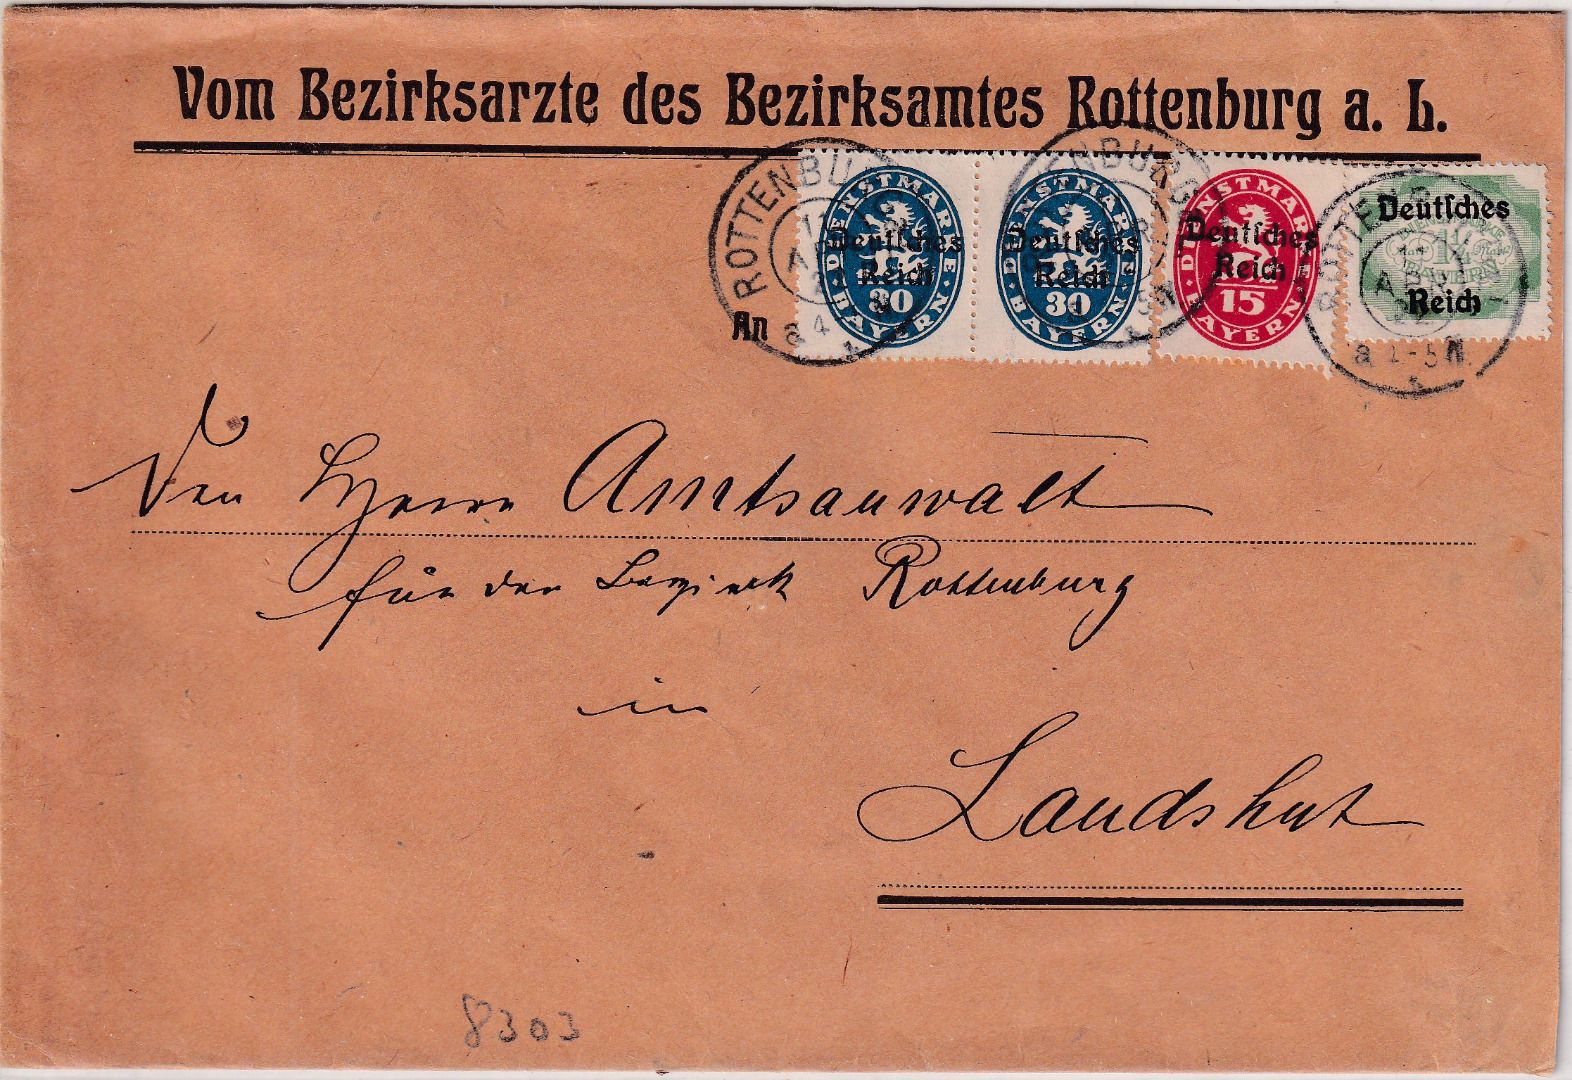 Vom Bezirksarzte des Bezirksamtes Rottenburg a. L.
DIENSTMARKE
Deutsches
Reich
30
BAYERN
DIENSTMARKE
Deutsches
Reich
30
BAYERN
DIENSTMARKE
Deutsches
Reich
15
BAYERN
Deutsches
BAYERN
Reich
ROTTENBU
An
Den Herrn Amtsanwalt
für den Bezirk Rottenburg
in
Landshut
8303